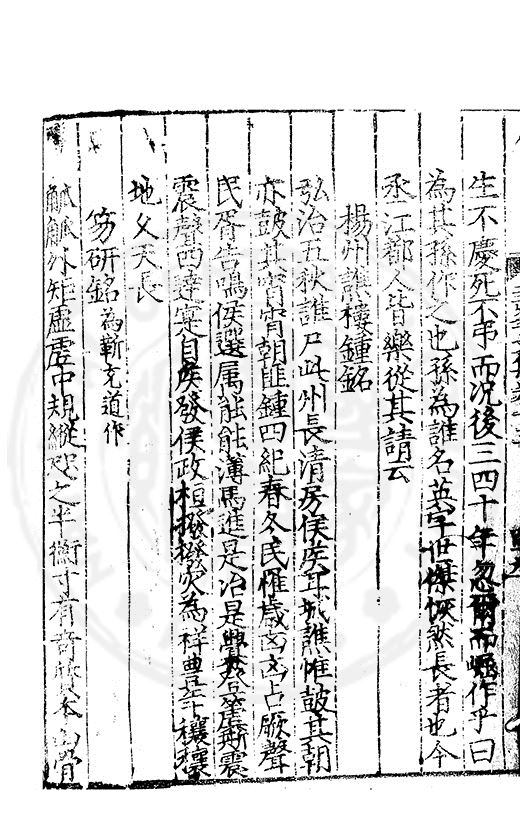 生不慶死不弔而況後三四十年忽爾而崛作乎曰
為其孫作之也孫為誰名英字伯 恢然長者也今
丞江都人皆樂從其請云
楊州譙樓鍾銘
弘治五秋誰尸此州長清房侯侯
城譙惟鼓其朝
亦鼓其宵宵朝匪鍾四紀春冬民惟歲凶凶占厥聲
民胥告
侯選属能能薄馬進是治是
震
震聲四達寔自矦發侯政桓撥撥
為祥豊年穰穰
地久天長
笏研銘為靳充道作
觚觚外矩虛虛中規縱
之半衡寸有奇質本山骨